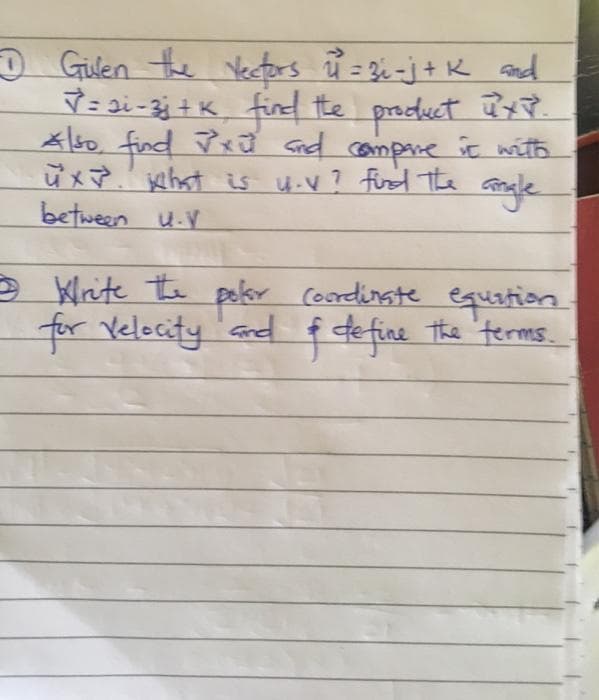 ① Given the vectors u⃗ = 3i-j+k and
v⃗ = 2i-3j+k, find the product u⃗xv⃗.
Also, find v⃗xu⃗ and compare it with
u⃗xv⃗. What is u.v? find the angle
between u.v
② Write the polar coordinate equation
for velocity and f define the terms.